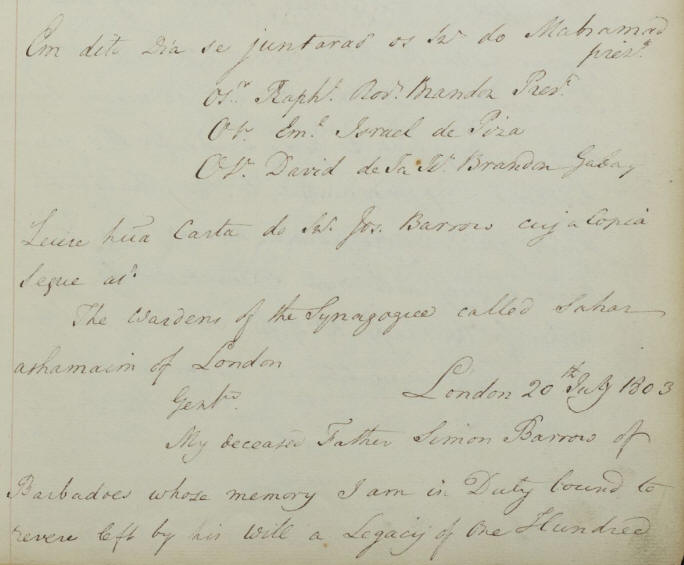 Em dito Dia se juntaraõ os Sres. do Mahamad
prezes.
Os Sr. Raphl. Rodr. Brandon Prezte.
O Sr. Eml. Israel de Piza
O Sr. David de Isa Sr. Brandon Gabay
Leuse hũa Carta do Sr. Jos. Barrow cuja Copia
Segue asi.
The Wardens of the Synagogue called Sahar
ashamaim of London
Gentn.
London 20th July 1803
My deceased Father Simon Barrow of
Barbadoes whose memory I am in Duty bound to
revere left by his Will a Legacy of One Hundred